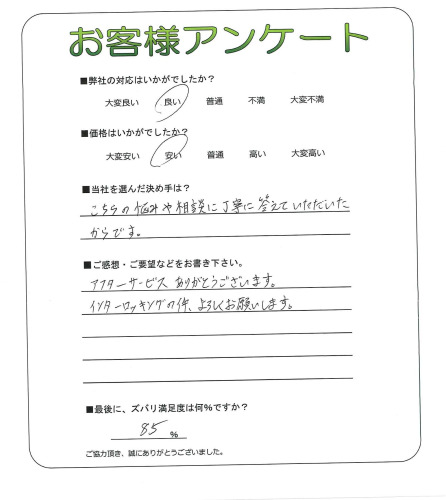 お客様アンケート
■弊社の対応はいかがでしたか？
大変良い 良い 普通 不満 大変不満
■価格はいかがでしたか？
大変安い 安い 普通 高い 大変高い
■当社を選んだ決め手は？
こちらの悩みや相談に丁寧に答えていただいた
からです。
■ご感想・ご要望などをお書き下さい。
アフターサービスありがとうございます。
インターロッキングの件、よろしくお願いします。
■最後に、ズバリ満足度は何%ですか？
85 %
ご協力頂き、誠にありがとうございました。